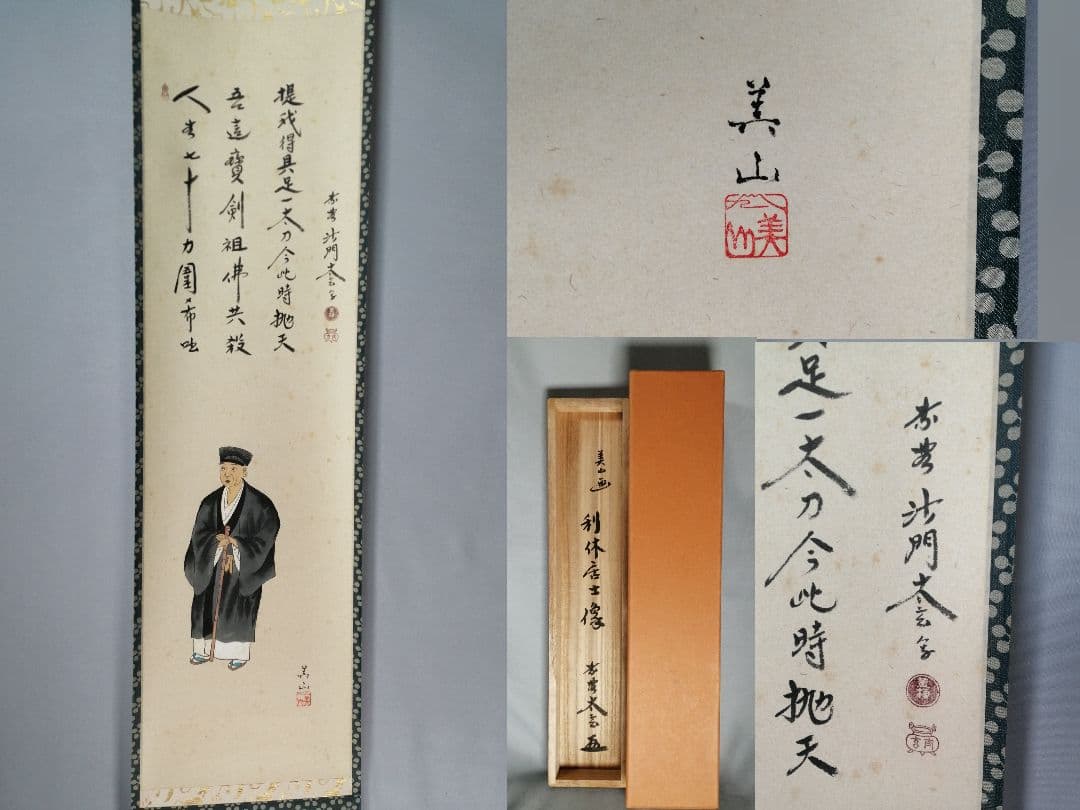 人生七十力圍希咄
吾這寶劍祖佛共殺
提我得具足一太刀今此時抛天
沙門太玄
美山
美山
美山
足一太刀今此時抛天
沙門太玄
美山画
利休居士像
太玄